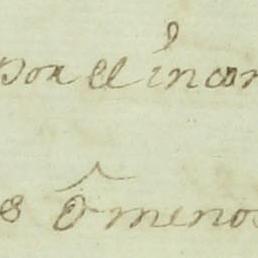 por el incon
s ô menos